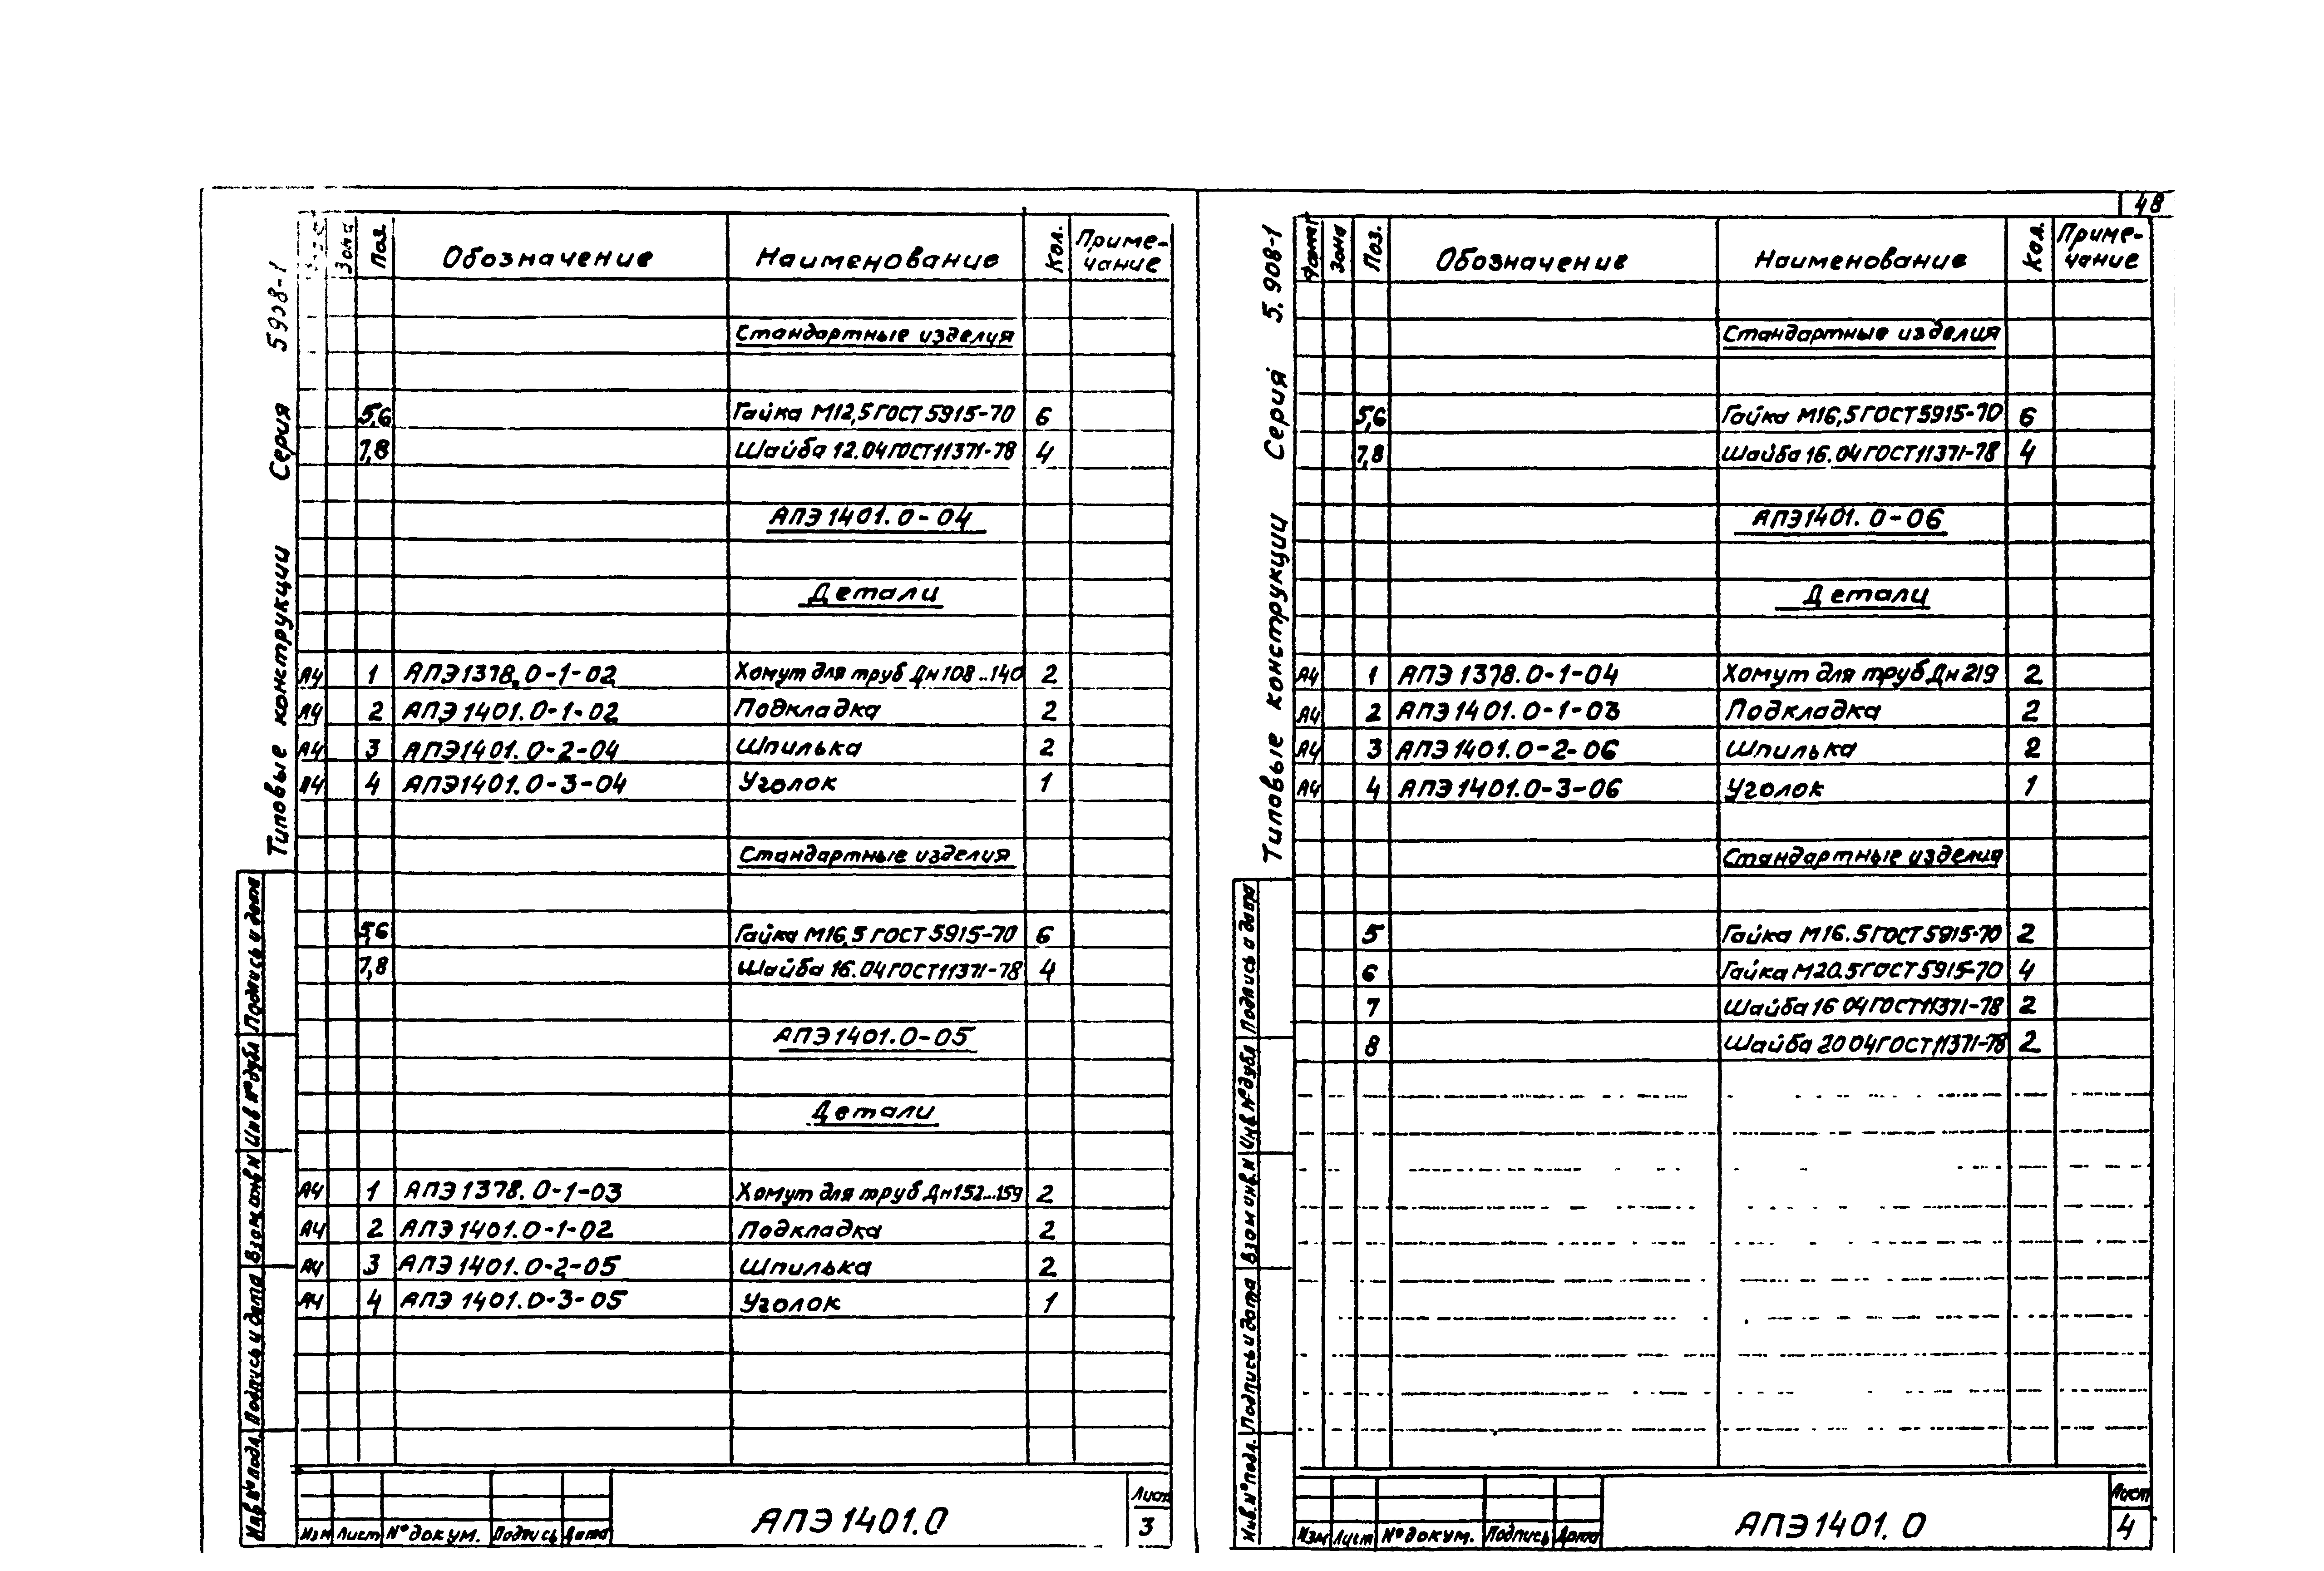 48
Типовые конструкции Серия 5.908-1
Зона Поз. Обозначение Наименование Кол. Приме-
чание
Стандартные изделия
5,6 Гайка М12,5 ГОСТ 5915-70 6
7,8 Шайба 12.04 ГОСТ 11371-78 4
АПЭ 1401.0-04
Детали
А4 1 АПЭ 1378.0-1-02 Хомут для труб Дн 108..140 2
А4 2 АПЭ 1401.0-1-02 Подкладка 2
А4 3 АПЭ 1401.0-2-04 Шпилька 2
А4 4 АПЭ 1401.0-3-04 Уголок 1
Стандартные изделия
5,6 Гайка М16,5 ГОСТ 5915-70 6
7,8 Шайба 16.04 ГОСТ 11371-78 4
АПЭ 1401.0-05
Детали
А4 1 АПЭ 1378.0-1-03 Хомут для труб Дн 152...159 2
А4 2 АПЭ 1401.0-1-02 Подкладка 2
А4 3 АПЭ 1401.0-2-05 Шпилька 2
А4 4 АПЭ 1401.0-3-05 Уголок 1
Инв № подл. Подпись и дата Взам инв N Инв № дубл Подпись и дата
Изм Лист № докум. Подпись Дата
АПЭ 1401.0
Лист
3
Типовые конструкции Серия 5.908-1
Формат Зона Поз. Обозначение Наименование Кол. Приме-
чание
Стандартные изделия
5,6 Гайка М16,5 ГОСТ 5915-70 6
7,8 Шайба 16.04 ГОСТ 11371-78 4
АПЭ 1401.0-06
Детали
А4 1 АПЭ 1378.0-1-04 Хомут для труб Дн 219 2
А4 2 АПЭ 1401.0-1-03 Подкладка 2
А4 3 АПЭ 1401.0-2-06 Шпилька 2
А4 4 АПЭ 1401.0-3-06 Уголок 1
Стандартные изделия
5 Гайка М16.5 ГОСТ 5915-70 2
6 Гайка М20.5 ГОСТ 5915-70 4
7 Шайба 16 04 ГОСТ 11371-78 2
8 Шайба 20 04 ГОСТ 11371-78 2
Инв. № подл. Подпись и дата Взам инв. N Инв. № дубл Подпись и дата
Изм Лист № докум. Подпись Дата
АПЭ 1401.0
Лист
4